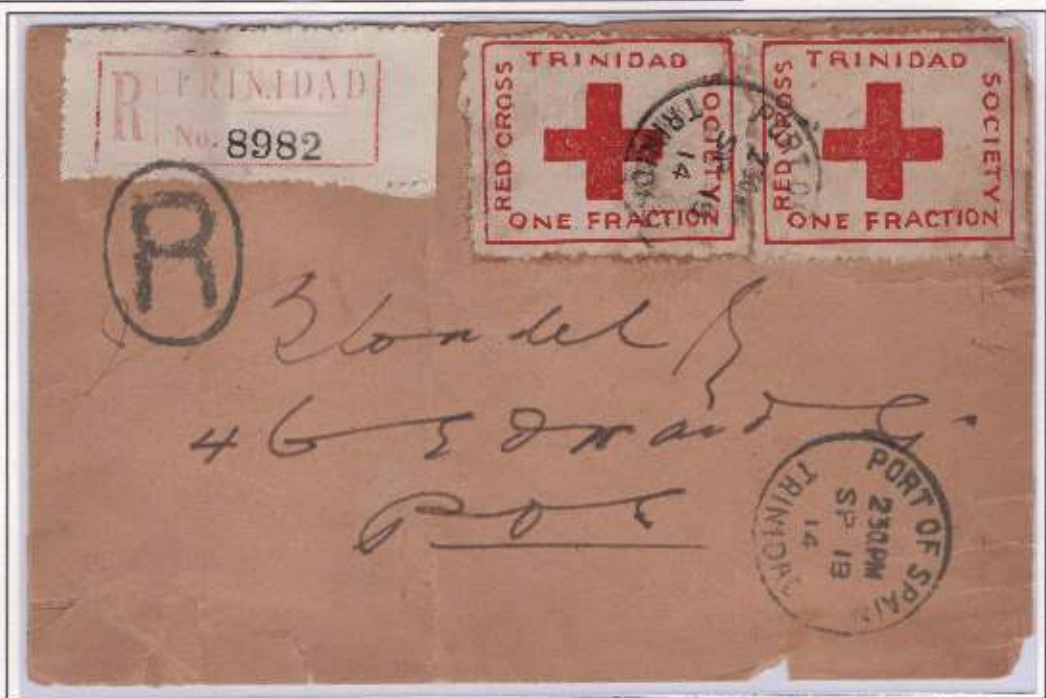 R TRINIDAD
No. 8982
TRINIDAD
RED CROSS
SOCIETY
ONE FRACTION
TRINIDAD
RED CROSS
SOCIETY
ONE FRACTION
PORT OF
2 30 PM
SP 19
14
TRINIDAD
R
46 Edward
POS
PORT OF SPAIN
2 30 PM
SP 19
14
TRINIDAD